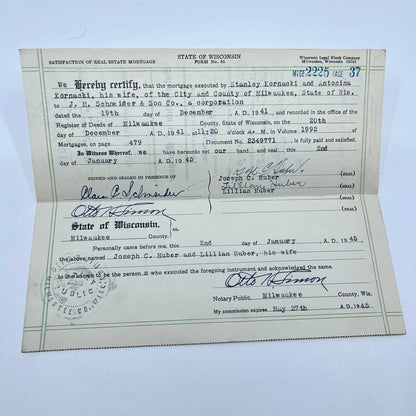 STATE OF WISCONSIN
SATISFACTION OF REAL ESTATE MORTGAGE
FORM No. 31
Wisconsin Legal Blank Company
Milwaukee, Wisconsin
MTGE 2225 PAGE 37
We Hereby certify, that the mortgage executed by Stanley Kornacki and Antonina
Kornacki, his wife, of the City and County of Milwaukee, State of Wis.
to J. M. Schneider & Son Co., a corporation
dated the 19th day of December A. D. 1941, recorded in the office of the
Register of Deeds of Milwaukee County, State of Wisconsin, on the 20th
day of December A. D. 1941 at 11:20 o'clock A. M. in Volume 1992
of Mortgages, on page 479 , Document No. 2349771 , is fully paid and satisfied
In Witness Whereof, we have hereunto set our hand and seal this 2nd day of
January A. D. 1945
SIGNED AND SEALED IN PRESENCE OF
Joseph C. Huber (SEAL)
Clara C. Schneider
Lillian Huber
Lillian Huber (SEAL)
Otto H. Simon (SEAL)
State of Wisconsin, ss.
Milwaukee County.
Personally came before me, this 2nd day of January A. D. 1945
the above named Joseph C. Huber and Lillian Huber, his wife
to me known to be the person s who executed the foregoing instrument and acknowledged the same.
Otto H. Simon
Notary Public, Milwaukee County, Wis.
My commission expires May 27th A. D. 1945
NOTARY PUBLIC
MILWAUKEE CO., WISC.